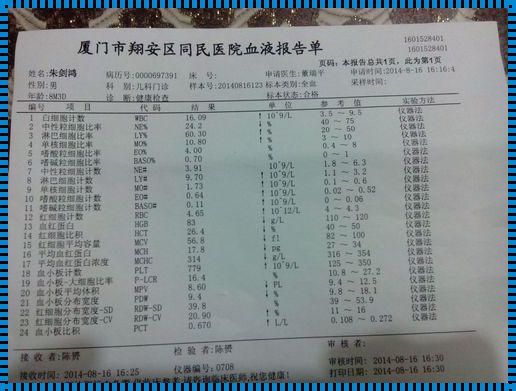 厦门市翔安区同民医院血液报告单
1601528401
1601528401
页码：本报告总共1页，此为第1页
姓名：朱剑鸿 病历号：0000697391 床 号： 申请医生：董瑞平 申请时间：2014-08-16 16:16:4
性别：男 科 别：儿科门诊 样本号：20140816123 标本类别：全血 采样时间：
年龄：8M3D 诊 断：健康检查 标本状态：合格
编号 项 目 代 码 结 果 单 位 参 考 值 实验方法
1 白细胞计数 WBC 16.09 ↑ 10^9/L 3.5 ~ 9.5 仪器法
2 中性粒细胞比率 NE% 24.2 ↓ % 40 ~ 75 仪器法
3 淋巴细胞比率 LY% 60.30 ↑ % 20 ~ 50 仪器法
4 单核细胞比率 MO% 10.80 ↑ % 3 ~ 10 仪器法
5 嗜酸粒细胞比率 EO% 4.00 % 0.4 ~ 8 仪器法
6 嗜碱粒细胞比率 BASO% 0.70 % 0 ~ 1 仪器法
7 中性粒细胞计数 NE# 3.91 10^9/L 1.8 ~ 6.3 仪器法
8 淋巴细胞计数 LY# 9.70 ↑ 10^9/L 1.1 ~ 3.2 仪器法
9 单核细胞计数 MO# 1.73 ↑ 10^9/L 0.1 ~ 0.6 仪器法
10 嗜酸粒细胞计数 EO# 0.64 ↑ 10^9/L 0.02 ~ 0.52 仪器法
11 嗜碱粒细胞计数 BASO# 0.11 ↑ 10^9/L 0 ~ 0.06 仪器法
12 红细胞计数 RBC 4.65 ↑ 10^12/L 4 ~ 4.3 仪器法
13 血红蛋白 HGB 83 ↓ g/L 110 ~ 120 仪器法
14 红细胞比积 HCT 26.4 ↓ % 40 ~ 50 仪器法
15 红细胞平均容量 MCV 56.8 ↓ fl 82 ~ 100 仪器法
16 平均血红蛋白 MCH 17.8 ↓ pg 27 ~ 34 仪器法
17 平均血红蛋白浓度 MCHC 314 ↓ g/L 316 ~ 354 仪器法
18 血小板计数 PLT 779 ↑ 10^9/L 125 ~ 350 仪器法
19 血小板-大细胞比率 P-LCR 16.4 % 10.8 ~ 27.2 仪器法
20 血小板平均体积 MPV 8.60 ↓ 9.4 ~ 12.5 仪器法
21 血小板分布宽度 PDW 9.4 ↓ % 9.8 ~ 18.1 仪器法
22 红细胞分布宽度-SD RDW-SD 39.8 39 ~ 53.9 仪器法
23 红细胞分布宽度-CV RDW-CV 20.90 ↑ % 11 ~ 16 仪器法
24 血小板比积 PCT 0.670 ↑ L/L 0.108 ~ 0.272 仪器法
接 收 者：陈赟 检 验 者：陈赟 审 核 者：
接收时间：2014-08-16 16:25 仪器编号：0708 审核时间：2014-08-16 16:30
打印日期：2014-08-16 16:30